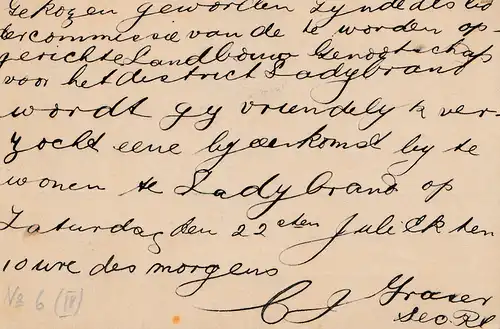 Gekozen geworden zynde als lid
der commissie van de te worden op-
gerichte Landbouw Genootschap
voor het district Ladybrand
wordt gy vriendelyk ver-
zocht eene byeenkomst by te
wonen te Ladybrand op
Zaturdag den 22sten Juli Elk ten
10 ure des morgens
C J Fraser
Vz 6 (IV)